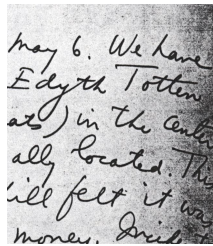 may 6. We have
Edyth Totten
ats) in the center
ally located. Th
ill felt it wa
money. Incid